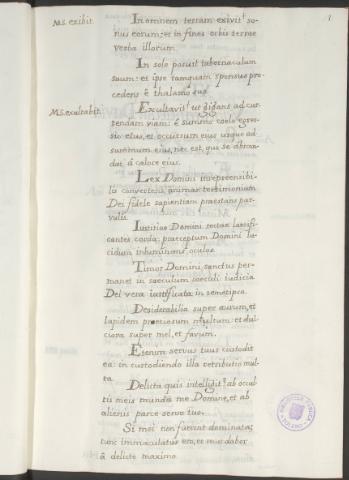 1
Ms. exibit.
In omnem terram exivit so-
nus eorum: et in fines orbis terrae
verba illorum.
In sole posuit tabernaculum
suum: et ipse tamquam sponsus pro-
cedens è thalamo suo.
Ms. exultabit.
Exultavit ut gigans ad cur-
rendam viam: è summo coelo egres-
sio ejus, et occursum ejus usque ad
summum ejus; nec est, qui se abscon-
dat à calore ejus.
Lex Domini inreprehensibi-
lis convertens animas: testimonium
Dei fidele sapientiam praestans par-
vulis.
Iustitiae Domini rectae laetifi-
cantes corda: praeceptum Domini lu-
cidum inluminans oculos.
Timor Domini sanctus per-
manet in saeculum saeculi: iudicia
Dei vera iustificata in semetipsa.
Desiderabilia super aurum, et
lapidem pretiosum multum: et dul-
ciora super mel, et favum.
Etenim servus tuus custodit
ea: in custodiendo illa retributio mul-
ta.
Delicta quis intelligit? ab occul-
tis meis munda me Domine, et ab
alienis parce servo tuo.
Si mei non fuerint dominata;
tunc immaculatus ero, et mundabor
à delicto maximo.